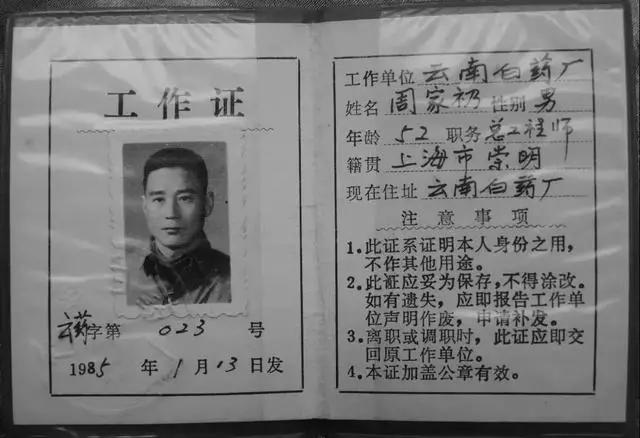 工作证
云药字第 023 号
1985 年 1 月 13 日发
工作单位 云南白药厂
姓名 周家礽 性别 男
年龄 52 职务 总工程师
籍贯 上海市崇明
现在住址 云南白药厂
注意事项
1.此证系证明本人身份之用,
不作其他用途。
2.此证应妥为保存,不得涂改。
如有遗失,应即报告工作单
位声明作废,申请补发。
3.离职或调职时,此证应即交
回原工作单位。
4.本证加盖公章有效。